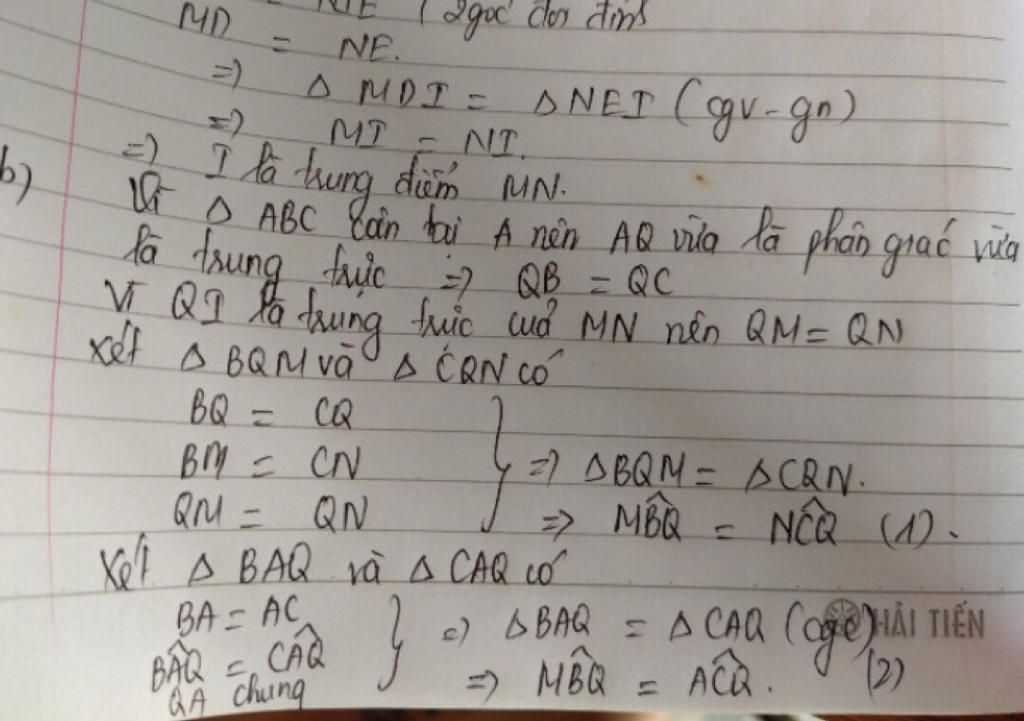 = NIE (2góc đối đỉnh
MD = NE.
=> Δ MDI = Δ NEI (cgv - gn)
=> MI = NI.
=> I là trung điểm MN.
b) Vì Δ ABC cân tại A nên AQ vừa là phân giác vừa
là trung trực => QB = QC
Vì QI là trung trực của MN nên QM = QN
Xét Δ BQM và Δ CQN có
BQ = CQ
BM = CN } => ΔBQM = ΔCQN.
QM = QN => MB̂Q = NĈQ (1).
Xét Δ BAQ và Δ CAQ có
BA = AC } => ΔBAQ = ΔCAQ (cgc) HẢI TIẾN
BÂQ = CÂQ => MB̂Q = AĈQ. (2)
QA chung